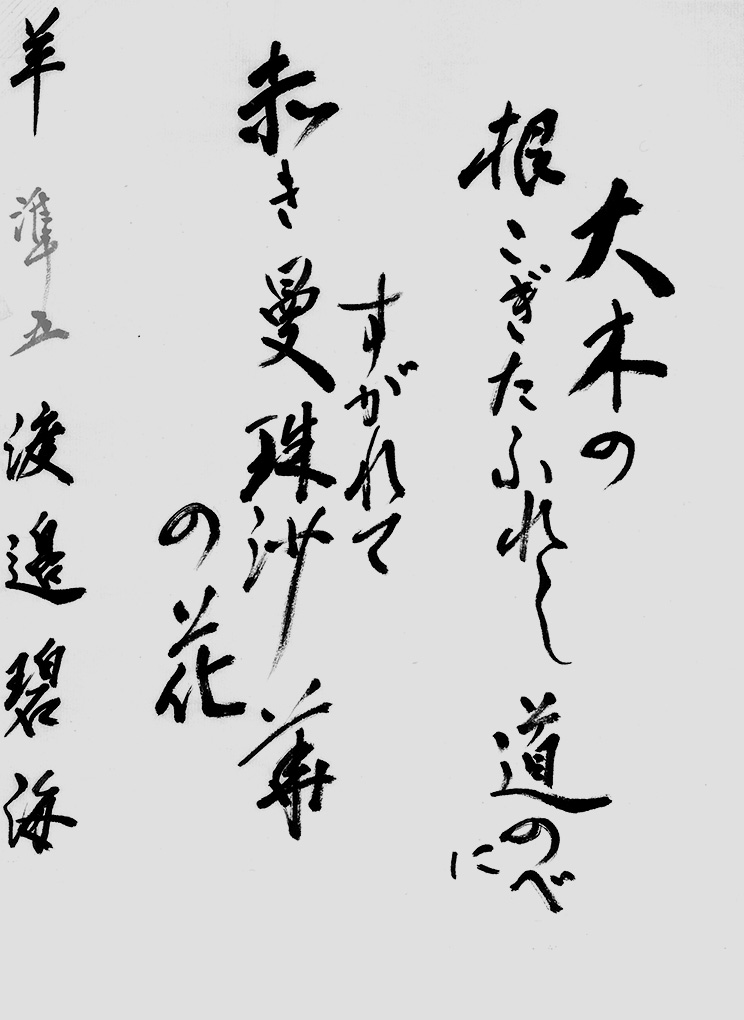 大木の
根こぎたふれし道のべ
に
すがれて
赤き曼珠沙華
の花
羊 準五 渡邉碧海